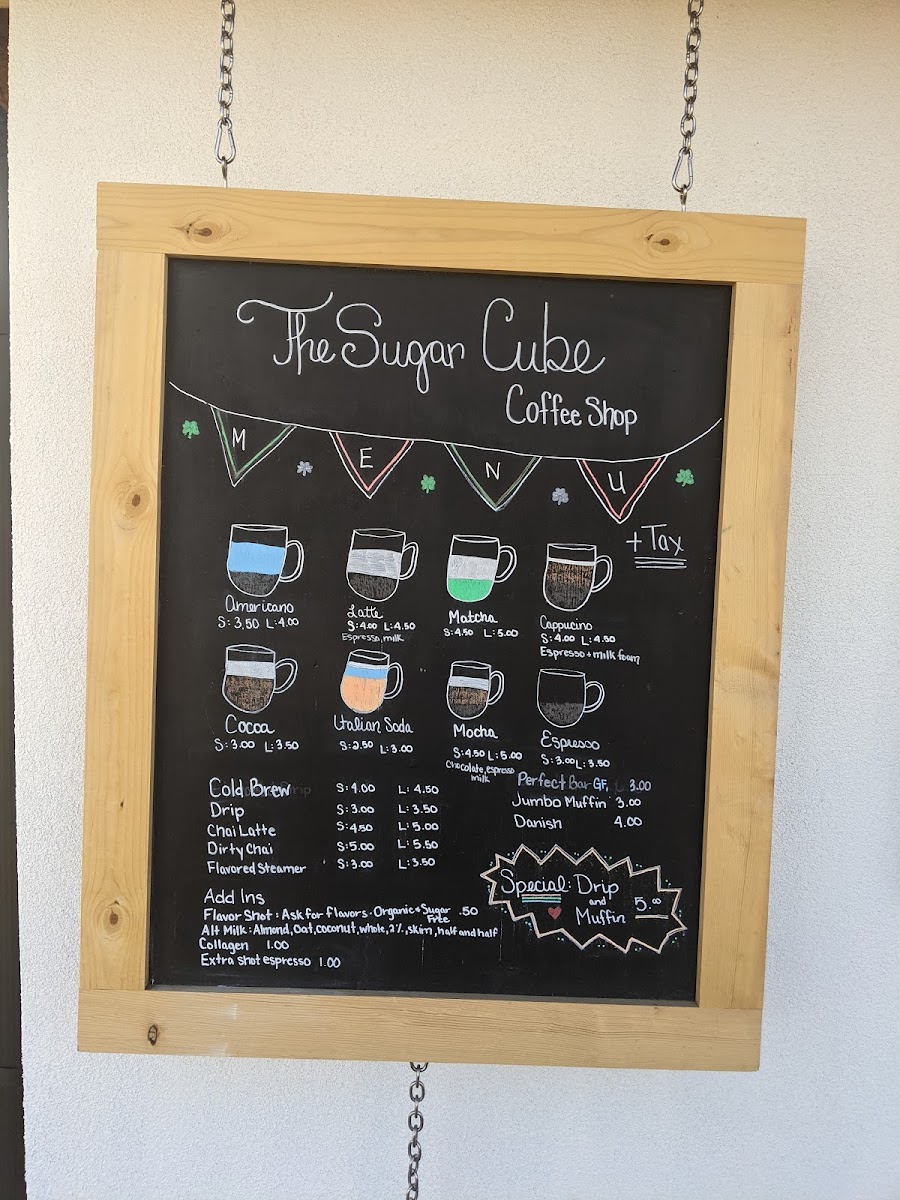 The Sugar Cube
Coffee Shop
MENU
+Tax
Americano
S: 3.50 L: 4.00
Latte
S: 4.00 L: 4.50
Espresso, milk
Matcha
S: 4.50 L: 5.00
Cappucino
S: 4.00 L: 4.50
Espresso + milk foam
Cocoa
S: 3.00 L: 3.50
Italian Soda
S: 2.50 L: 3.00
Mocha
S: 4.50 L: 5.00
Chocolate, espresso
milk
Espresso
S: 3.00 L: 3.50
Cold Brew S: 4.00 L: 4.50
Drip S: 3.00 L: 3.50
Chai Latte S: 4.50 L: 5.00
Dirty Chai S: 5.00 L: 5.50
Flavored Steamer S: 3.00 L: 3.50
Perfect Bar GF, 3.00
Jumbo Muffin 3.00
Danish 4.00
Special: Drip
and
Muffin 5.00
Add Ins
Flavor Shot: Ask for flavors. Organic + Sugar Free .50
Alt Milk: Almond, Oat, coconut, whole, 2%, skim, half and half
Collagen 1.00
Extra shot espresso 1.00